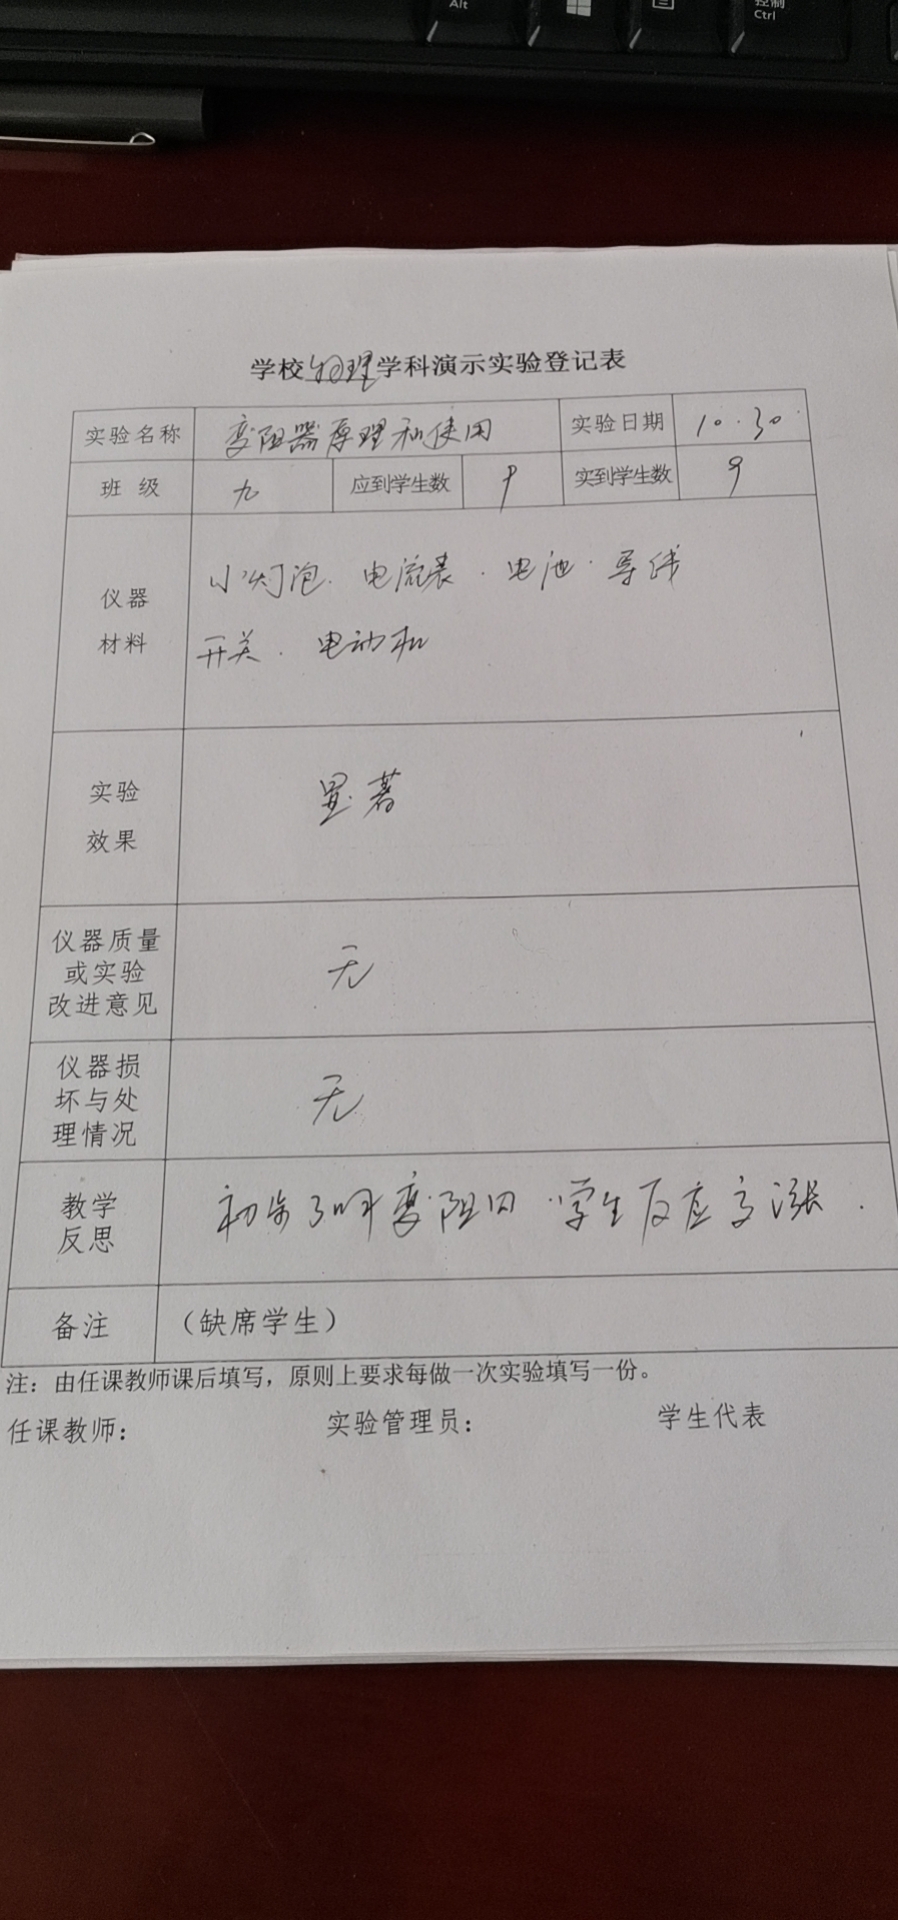 Alt
控制
Ctrl
学校物理学科演示实验登记表
实验名称 变阻器原理和使用 实验日期 10.30
班 级 九 应到学生数 9 实到学生数 9
仪器
材料
小灯泡. 电流表. 电池. 导线
开关. 电动机
实验
效果
显著
仪器质量
或实验
改进意见
无
仪器损
坏与处
理情况
无
教学
反思
初步了解变阻 学生反应高涨.
备注 （缺席学生）
注：由任课教师课后填写，原则上要求每做一次实验填写一份。
任课教师： 实验管理员： 学生代表